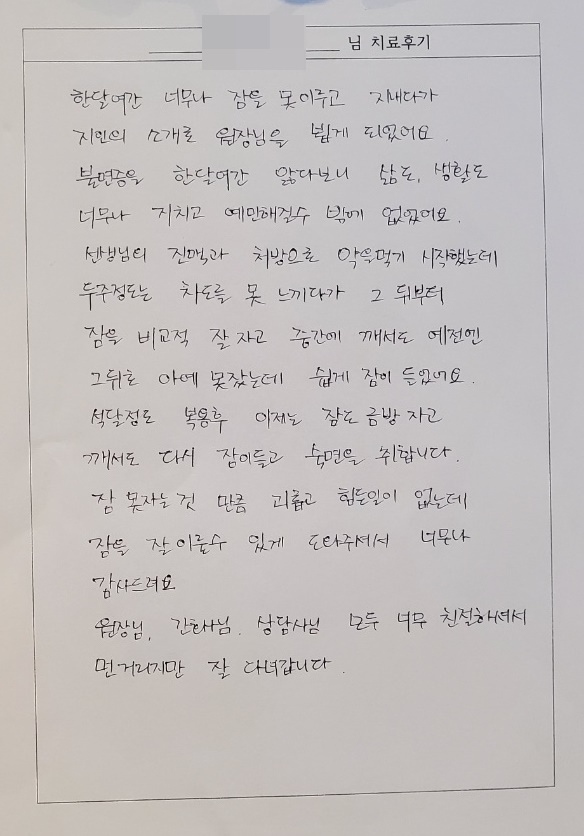 님 치료후기
한달여간 너무나 잠을 못이루고 지내다가
지인의 소개로 원장님을 뵙게 되었어요.
불면증을 한달여간 앓다보니 삶도, 생활도
너무나 지치고 예민해질수 밖에 없었어요.
선생님의 진맥과 처방으로 약을먹기 시작했는데
두주정도는 차도를 못 느끼다가 그 뒤부터
잠을 비교적 잘 자고 중간에 깨서도 예전엔
그뒤로 아예 못잤는데 쉽게 잠이 들었어요.
석달정도 복용후 이제는 잠도 금방 자고
깨서도 다시 잠이들고 숙면을 취합니다.
잠 못자는것 만큼 괴롭고 힘든일이 없는데
잠을 잘 이룰수 있게 도와주셔서 너무나
감사드려요
원장님, 간호사님, 상담사님 모두 너무 친절해셔서
먼거리지만 잘 다녀갑니다.